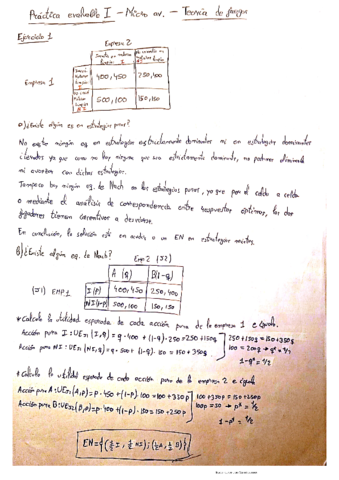 Práctica evaluable I - Micro av. - Teoría de juegos
Ejercicio 1
Empresa 2
Empresa 1
400,450 250,400
500,100 150,150
a) ¿Existe algún eq en estrategias puras?
No existe ningún eq en estrategias estrictamente dominantes ni en estrategias dominantes
iteradas ya que como no hay ninguna que sea estrictamente dominante, no podemos eliminarla
ni avanzar con dichas estrategias.
Tampoco hay ningún eq. de Nash en las estrategias puras, ya que por el celda a celda
o mediante el análisis de correspondencia entre respuestas óptimas, los dos
jugadores tienen incentivos a desviarse.
En conclusión, la solución está en un EN en estrategias mixtas.
b) ¿Existe algún eq. de Nash?
Emp 2 (J2)
A (q) B(1-q)
(J1) EMP 1 I (p) 400,450 250,400
NI(1-p) 500,100 150,150
* Calculo la utilidad esperada de cada acción pura de la empresa 1 e igualo.
Acción pura I: UE J1 (I,q) = q·400 + (1-q)·250 = 250 + 150q
Acción pura NI: UE J1 (NI,q) = q·500 + (1-q)·150 = 150 + 350q
250 + 150q = 150 + 350q
100 = 200q → q* = 1/2
1-q* = 1/2
* Calculo la utilidad esperada de cada acción pura de la empresa 2 e igualo
Acción pura A: UE J2 (A,p) = p·450 + (1-p)·100 = 100 + 350p
Acción pura B: UE J2 (B,p) = p·400 + (1-p)·150 = 150 + 250p
100 + 350p = 150 + 250p
100p = 50 → p* = 1/2
1-p* = 1/2
EN = {(1/2 I, 1/2 NI); (1/2 A, 1/2 B)}